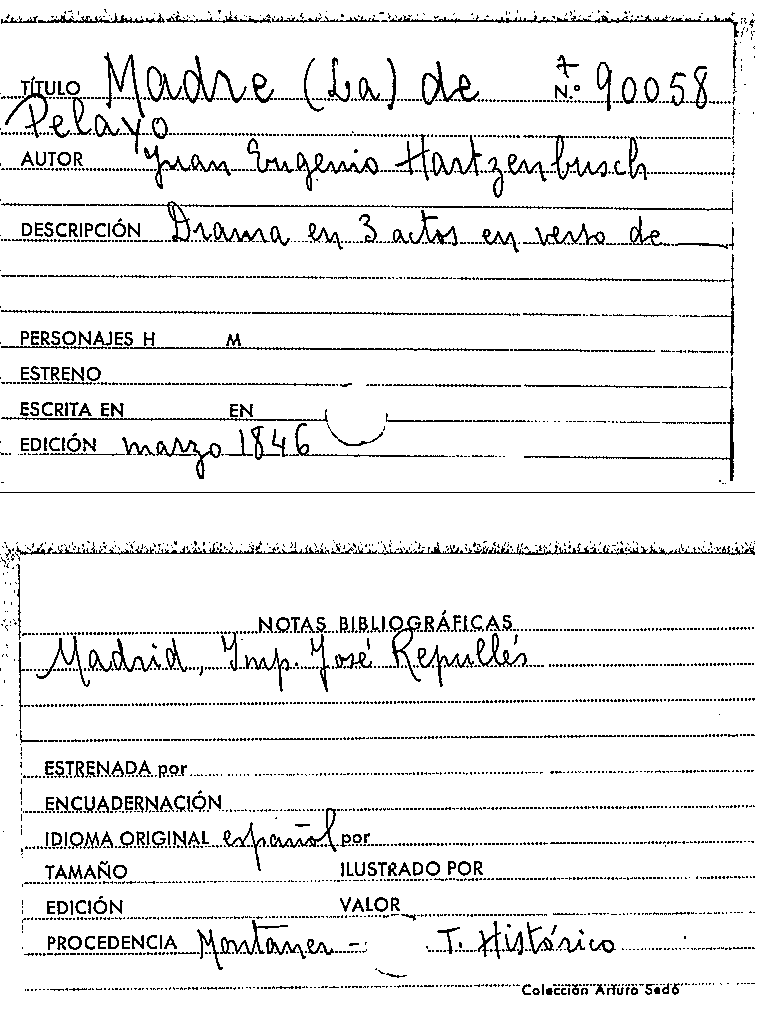 TÍTULO Madre (La) de N.º 90058
Pelayo
AUTOR Juan Eugenio Hartzenbusch
DESCRIPCIÓN Drama en 3 actos en verso de
PERSONAJES H M
ESTRENO
ESCRITA EN EN
EDICIÓN marzo 1846
NOTAS BIBLIOGRÁFICAS
Madrid, Imp. José Repullés
ESTRENADA por
ENCUADERNACIÓN
IDIOMA ORIGINAL español por
TAMAÑO ILUSTRADO POR
EDICIÓN VALOR
PROCEDENCIA Montaner - T. Histórico
Colección Arturo Sedó